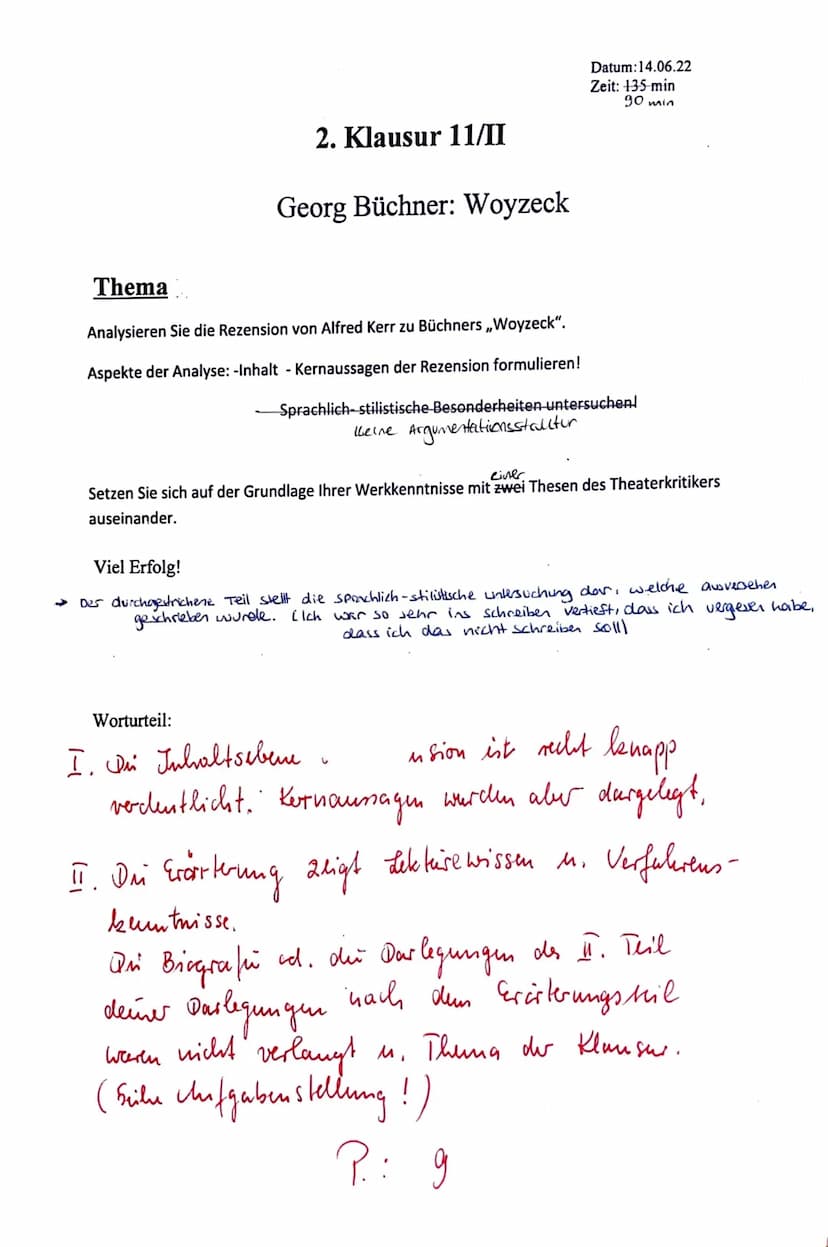 Datum:14.06.22
Zeit: 135 min
90 min
2. Klausur 11/II
Georg Büchner: Woyzeck
Thema
Analysieren Sie die Rezension von Alfred Kerr zu Büchners „Woyzeck“.
Aspekte der Analyse: -Inhalt - Kernaussagen der Rezension formulieren!
Sprachlich- stilistische Besonderheiten untersuchen!
keine Argumentationsstruktur
einer
Setzen Sie sich auf der Grundlage Ihrer Werkkenntnisse mit zwei Thesen des Theaterkritikers
auseinander.
Viel Erfolg!
→ Der durchgestrichene Teil stellt die sprachlich-stilistische untersuchung dar, welche ausversehen
geschrieben wurde. (Ich war so sehr ins schreiben vertieft, dass ich vergessen habe,
dass ich das nicht schreiben soll)
Worturteil:
I. Die Inhaltsebene nsion ist recht knapp
verdeutlicht. Kernaussagen wurden aber dargelegt.
II. Die Erörterung zeigt Lektürewissen u. Verfahrens-
kenntnisse.
Die Biografie od. die Darlegungen des II. Teil
deiner Darlegungen nach dem Erörterungsteil
waren nicht verlangt u. Thema der Klausur.
(Siehe Aufgabenstellung!)
P.: 9